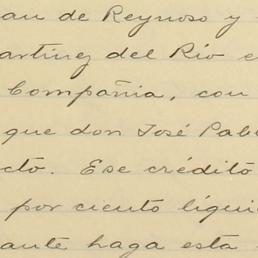 an de Reynoso y
artinez del Rio e
Compañia, con
que don José Pabl
cto. Ese crédito
por ciento líqui
ante haga esta